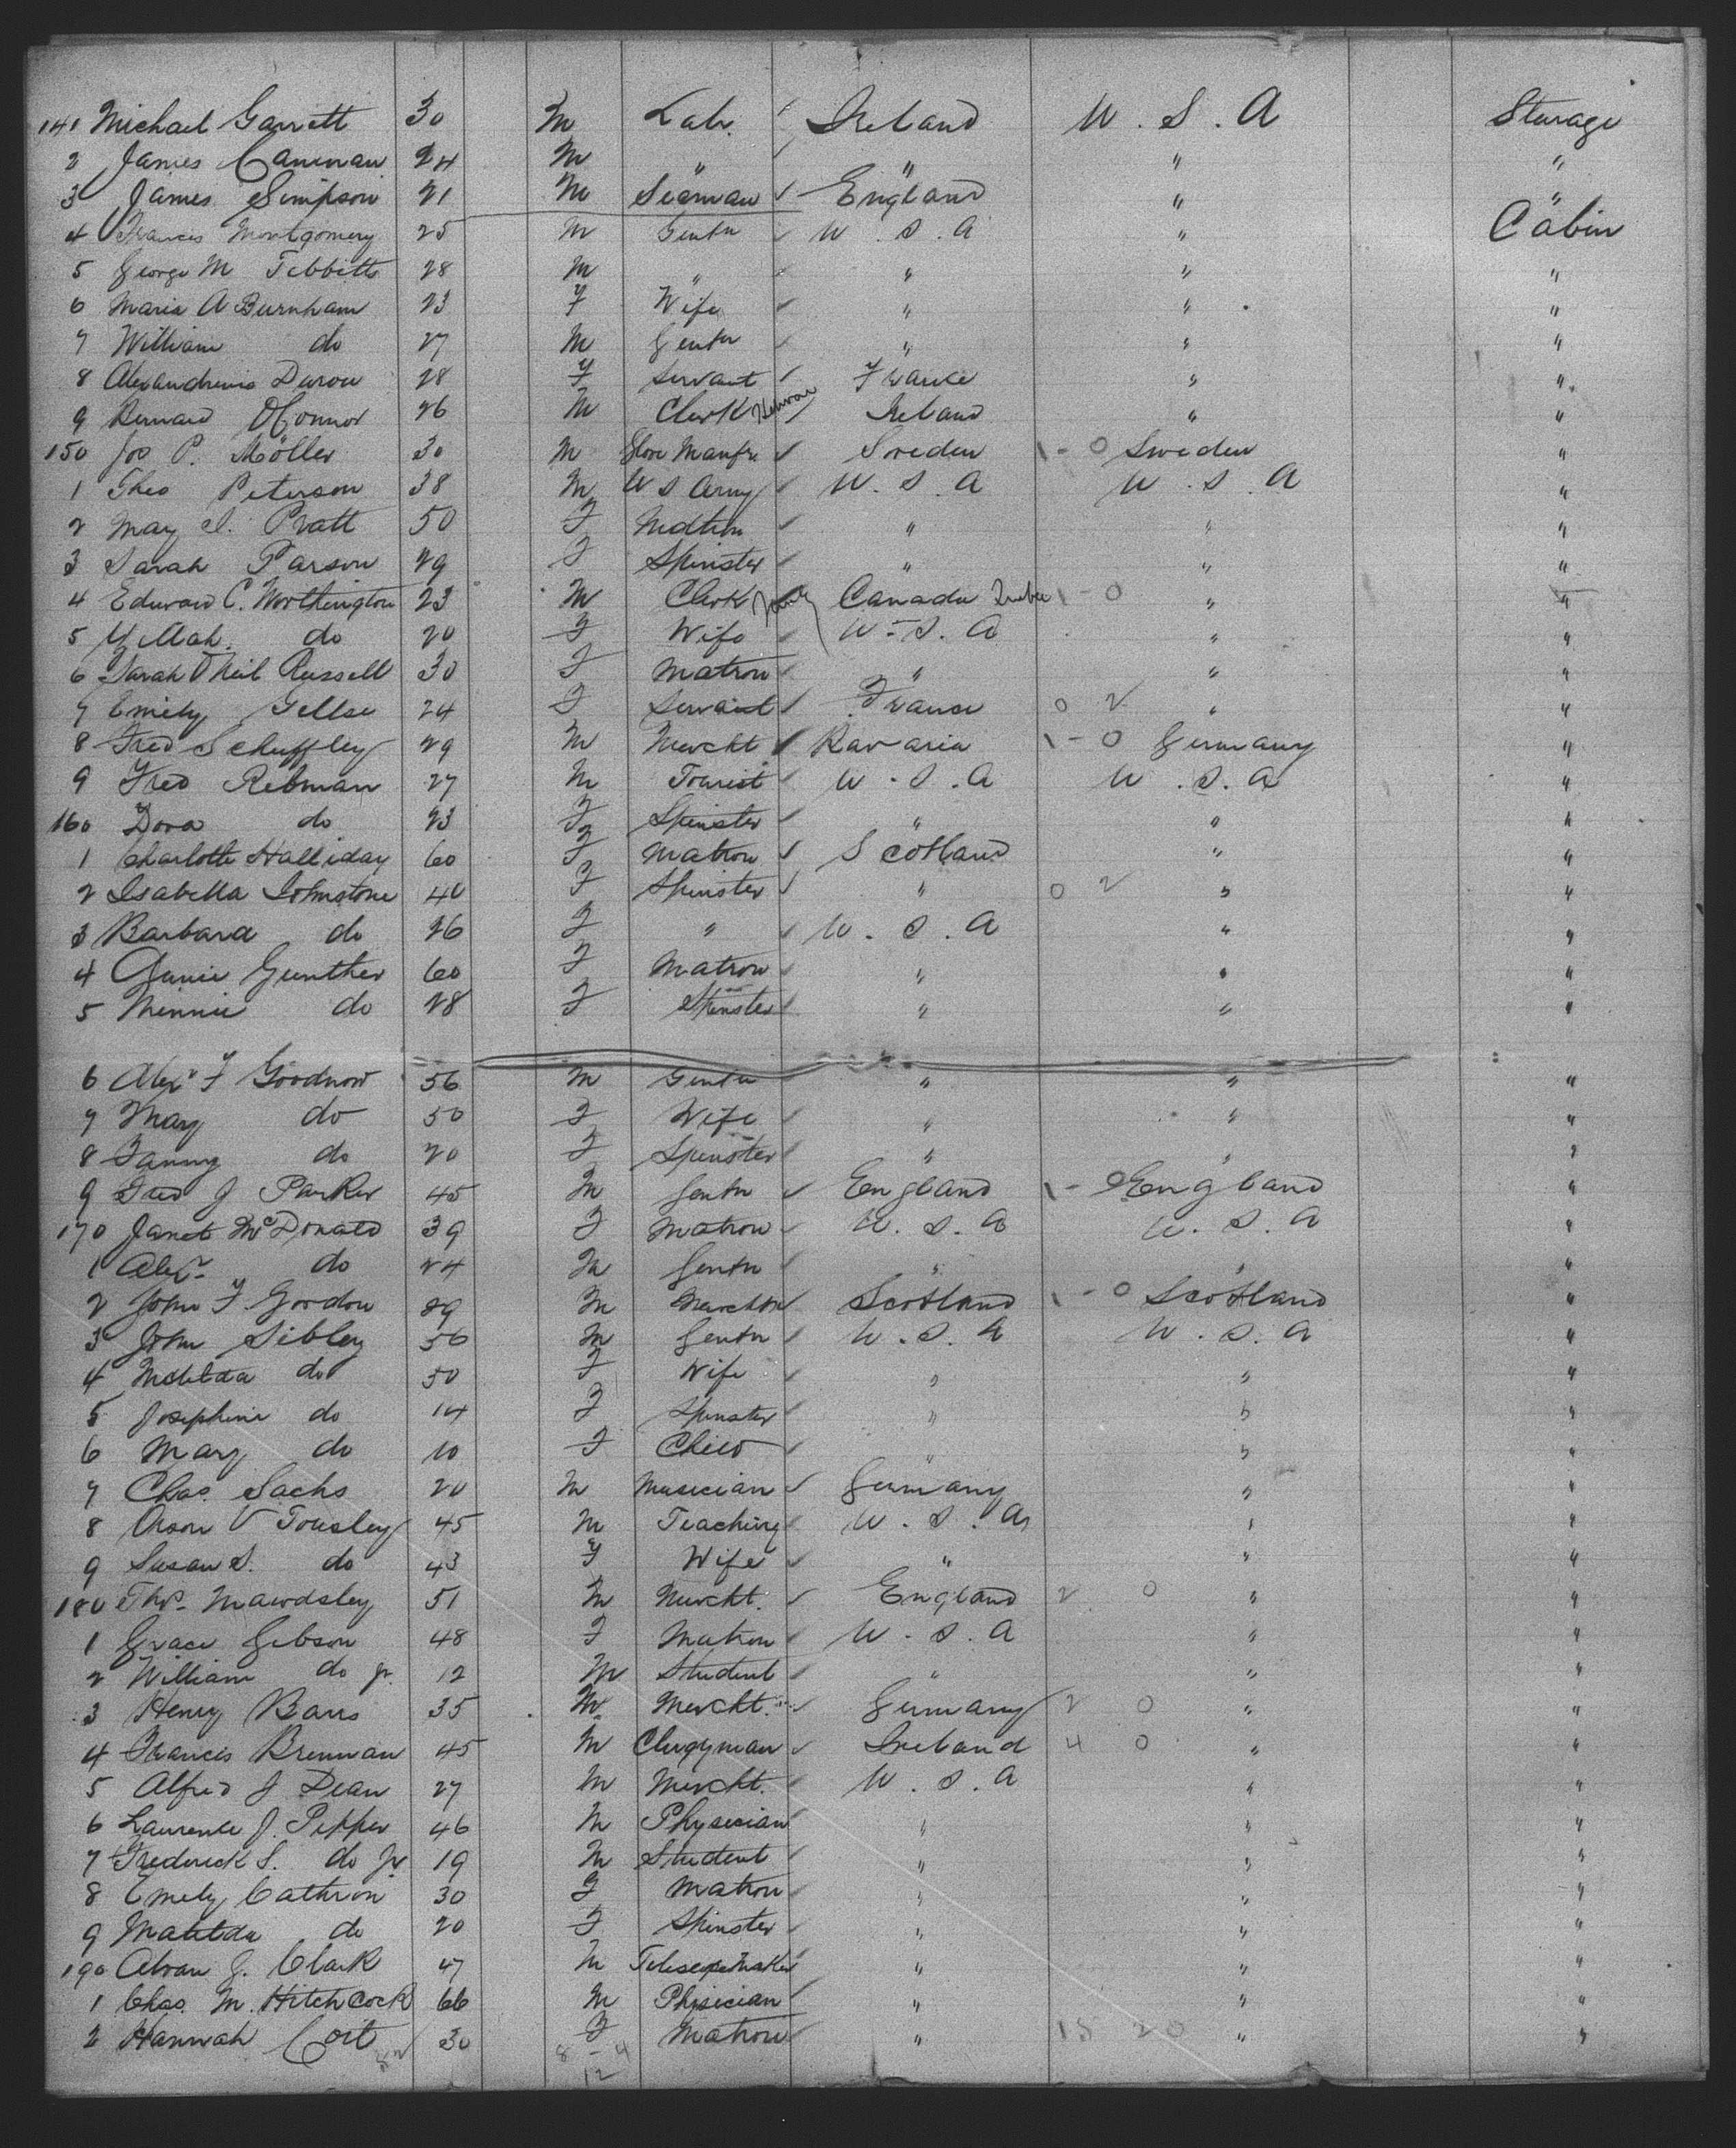 141 Michael Garrett 30 M Lab. Ireland U.S.A Sterage
2 James 24 M " " " "
3 James Simpson 21 M Seaman England " "
4 Frances Montgomery 25 M Gentn U.S.A " Cabin
5 George M Tebbitts 28 M " " " "
6 Maria A Burnham 23 F Wife " " "
7 William do 27 M Gentn " " "
8 Alexandrina 28 F Servant France " "
9 Bernard O'Connor 26 M Clerk Ireland " "
150 Jos P. Möller 30 M Manfr Sweden 1-0 Sweden "
1 Theo Peterson 38 M U S Army U.S.A U.S.A "
2 May S. Pratt 50 F Matrn " " "
3 Sarah Parson 29 F Spinster " " "
4 Edward C. Worthington 23 M Clerk Canada 1-0 " "
5 do 20 F Wife U.S.A " "
6 Sarah O'Neil Russell 30 F Matron " " "
7 Emily 24 F Servant France 0 2 " "
8 Fred Schuffley 29 M Mercht Bavaria 1-0 Germany "
9 Fred Rebman 27 M Tourist U.S.A U.S.A "
160 Dora do 23 F Spinster " " "
1 Charlotte Halliday 60 F Matron Scotland " "
2 Isabella Johnstone 40 F Spinster " 0 2 " "
3 Barbara do 26 F " U.S.A " "
4 Gunther 60 F Matron " " "
5 Minnie do 28 F Spinster " " "
6 Alexr F Goodnow 56 M Gentn " " "
7 Mary do 50 F Wife " " "
8 Fanny do 20 F Spinster " " "
9 Fred J Parker 45 M Gentn England 1-0 England "
170 Janet McDonald 39 F Matron U.S.A U.S.A "
1 Alexr do 24 M Gentn " " "
2 John F Gordon 29 M Merchtn Scotland 1-0 Scotland "
3 John Sibley 56 M Gentn U.S.A U.S.A "
4 Matilda do 50 F Wife " " "
5 Josephine do 14 F Spinster " " "
6 Mary do 10 F Child " " "
7 Chas. Sachs 20 M Musician Germany " "
8 Orson V Tousley 45 M Teaching U.S.A " "
9 Susan S. do 43 F Wife " " "
180 Thos. Mawdsley 51 M Mercht. England 2 0 " "
1 Grace Gibson 48 F Matron U.S.A " "
2 William do Jr. 12 M Student " " "
3 Henry Bars 35 M Mercht. Germany 2 0 " "
4 Francis Brennan 45 M Clergyman Ireland 4 0 " "
5 Alfred J Dean 27 M Mercht. U.S.A " "
6 Laurence J. Pepper 46 M Physician " " "
7 Frederick S. do Jr 19 M Student " " "
8 Emely Cathron 30 F Matron " " "
9 Matilda do 20 F Spinster " " "
190 Alvan G. Clark 47 M Telescope Maker " " "
1 Chas. M. Hitchcock 66 M Physician " " "
2 Hannah Cort 30 F Matron " 15 20 " "
8-4
12